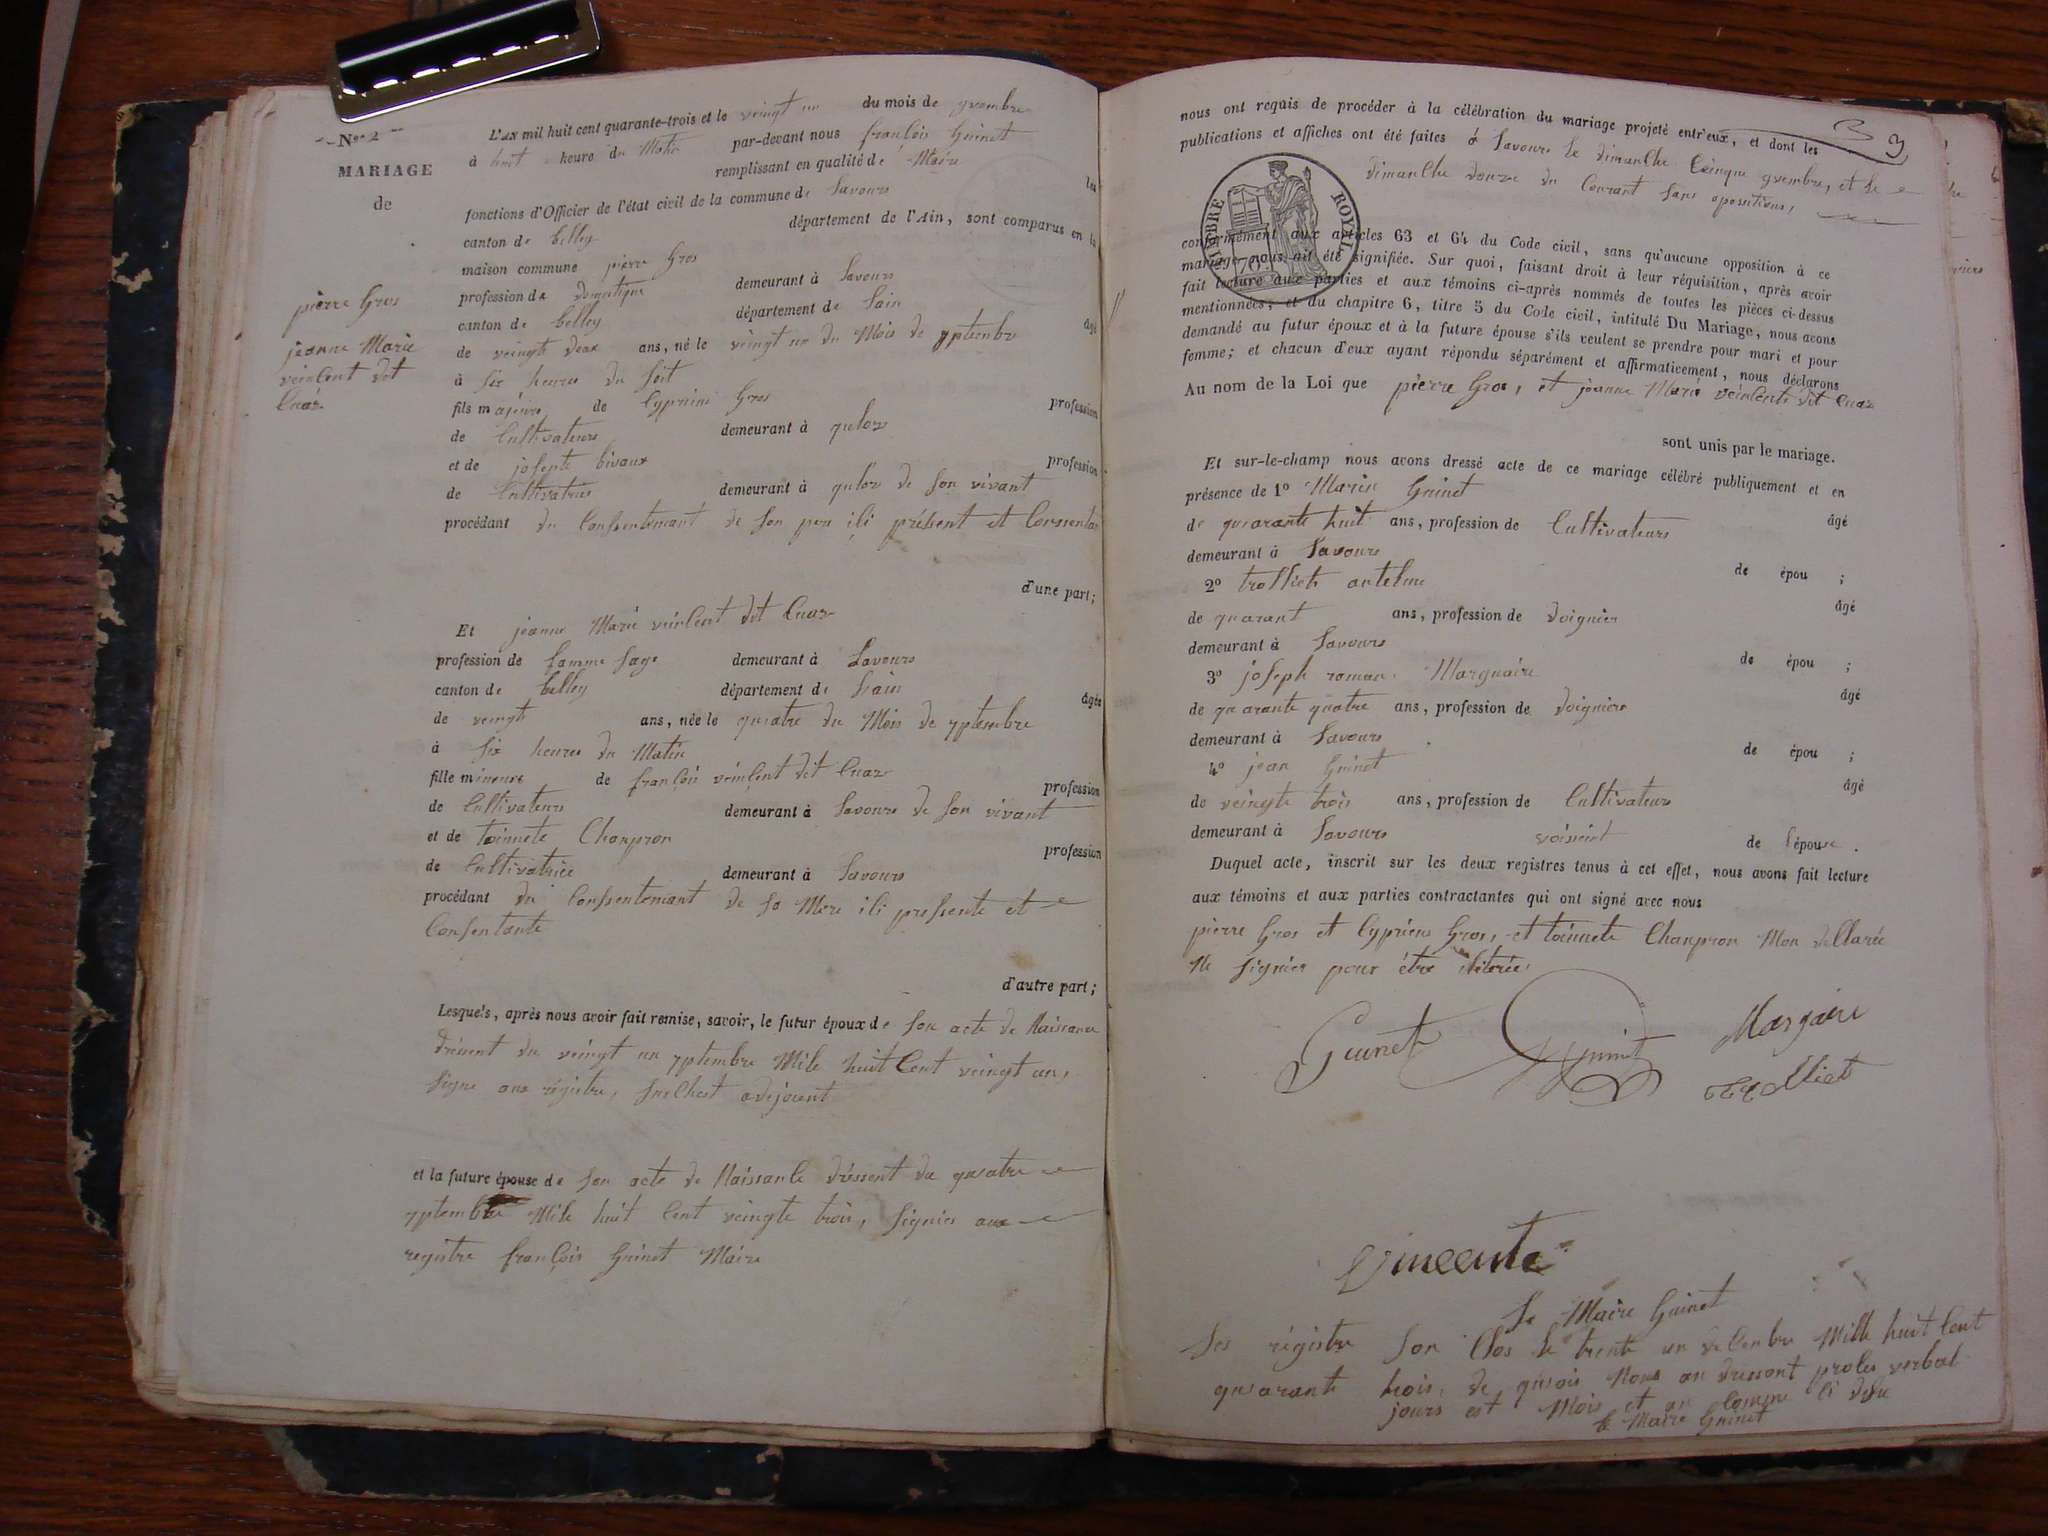 Nos 2
MARIAGE
de
pierre Gros
jeanne Marie
veinlent dit
Cuaz
L'an mil huit cent quarante-trois et le veingt un du mois de 9vembre
à huit heure du Matin par-devant nous françois Guinet
remplissant en qualité de Maire les
fonctions d'Officier de l'état civil de la commune de Savours
canton de belley département de l'Ain, sont comparus en la
maison commune pierre Gros
profession de domestique demeurant à Savours
canton de belley département de Lain âgé
de veingte deux ans, né le veingt un du Mois de 7ptembre
à six heures du Soit
fils majeure de Cyprien Gros profession
de Cultivateure demeurant à quloz
et de josepte bivaux profession
de Cultivatrice demeurant à quloz de son vivant
procédant du Consentemant de son pere ili présent et Consentan
d'une part;
Et jeanne Marie veinlent dit Cuaz
profession de famme sage demeurant à Savours
canton de belley département de Lain âgée
de veingt ans, née le quatre du Mois de 7ptembre
à six heures du Matin
fille mineure de françois veinlent dit Cuaz profession
de Cultivateure demeurant à Savours de son vivant
et de toinnete Chanpron profession
de Cultivatrice demeurant à Savours
procédant du Consentemant de sa Mere ili presente et
Consentante
d'autre part;
Lesquels, après nous avoir fait remise, savoir, le futur époux de son acte de Naissance
dréssent du veingt un 7ptembre Mile huit Cent veingt un,
signe aux régistre, adejoient
et la future épouse de son acte de Naissanle dréssent du quatre
7ptembre Mile huit Cent veingte trois, signier aux
registre françois Guinet Maire
3
nous ont requis de procéder à la célébration du mariage projeté entr'eux, et dont les
publications et affiches ont été faites à Savours le dimanche Ceinque 9vembre, et le
dimanche douze du Courant sans opositions,
TIMBRE ROYAL
70
conformément aux articles 63 et 64 du Code civil, sans qu'aucune opposition à ce
mariage nous ait été signifiée. Sur quoi, faisant droit à leur réquisition, après avoir
fait lecture aux parties et aux témoins ci-après nommés de toutes les pièces ci-dessus
mentionnées, et du chapitre 6, titre 5 du Code civil, intitulé Du Mariage, nous avons
demandé au futur époux et à la future épouse s'ils veulent se prendre pour mari et pour
femme; et chacun d'eux ayant répondu séparément et affirmativement, nous déclarons
Au nom de la Loi que pierre Gros, et jeanne Marie veinlente dit Cuaz
sont unis par le mariage.
Et sur-le-champ nous avons dressé acte de ce mariage célébré publiquement et en
présence de 1º Marin Guinet âgé
de quarante huit ans, profession de Cultivateurs
demeurant à Savours de épou ;
2º trolliete antelme âgé
de quarant ans, profession de doignier
demeurant à Savours de épou ;
3º joseph roman Marguaire âgé
de quarante quatre ans, profession de doigniere
demeurant à Savours de épou ;
4º jean Guinet âgé
de veingte trois ans, profession de Cultivateur
demeurant à Savours voiseint de l'épouse.
Duquel acte, inscrit sur les deux registres tenus à cet effet, nous avons fait lecture
aux témoins et aux parties contractantes qui ont signé avec nous
pierre Gros et Cyprien Gros, et toinnete Chanpron Mon dellarée
Ne signier pour être iliterée.
Guinet Guinet Margaire
Vincente
Le Maire Guinet
Les régistre son Clos le trente un delenbre Mille huit Cent
quarante trois, de quois Nous an dressont proles verbal
jours est Mois et an Comme li desu
le Maire Guinet